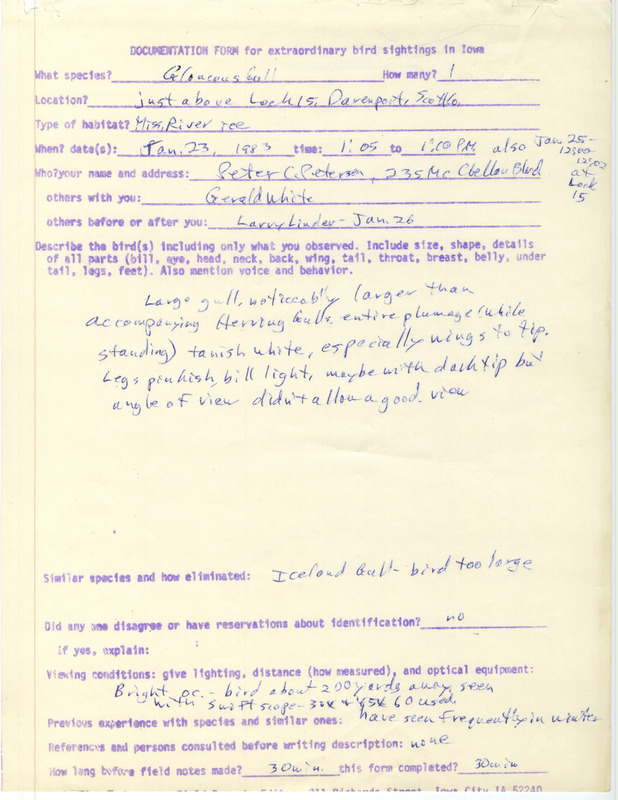 DOCUMENTATION FORM for extraordinary bird sightings in Iowa
What species? Glaucous Gull How many? 1
Location? just above Lock 15, Davenport, Scott Co.
Type of habitat? Miss. River ice
When? date(s): Jan. 23, 1983 time: 1:05 to 1:10 PM also Jan 25-
at
Lock
15
Who?your name and address: Peter C. Petersen, 235 McClellan Blvd
others with you: Gerald White
others before or after you: Larry Linder - Jan. 26
Describe the bird(s) including only what you observed. Include size, shape, details
of all parts (bill, eye, head, neck, back, wing, tail, throat, breast, belly, under
tail, legs, feet). Also mention voice and behavior.
Large gull, noticeably larger than
accompanying Herring Gulls. entire plumage (while
standing) tanish white, especially wings to tip.
Legs pinkish, bill light, maybe with dark tip but
angle of view didn't allow a good view
Similar species and how eliminated: Iceland Gull - bird too large
Did any one disagree or have reservations about identification? no
If yes, explain:
Viewing conditions: give lighting, distance (how measured), and optical equipment:
Bright oc. - bird about 200 yards away, seen
with Swift scope - 30X + 60 used
Previous experience with species and similar ones: have seen frequently in winter
References and persons consulted before writing description: none
How long before field notes made? 30 min. this form completed? 30 min
Street, Iowa City IA 52240